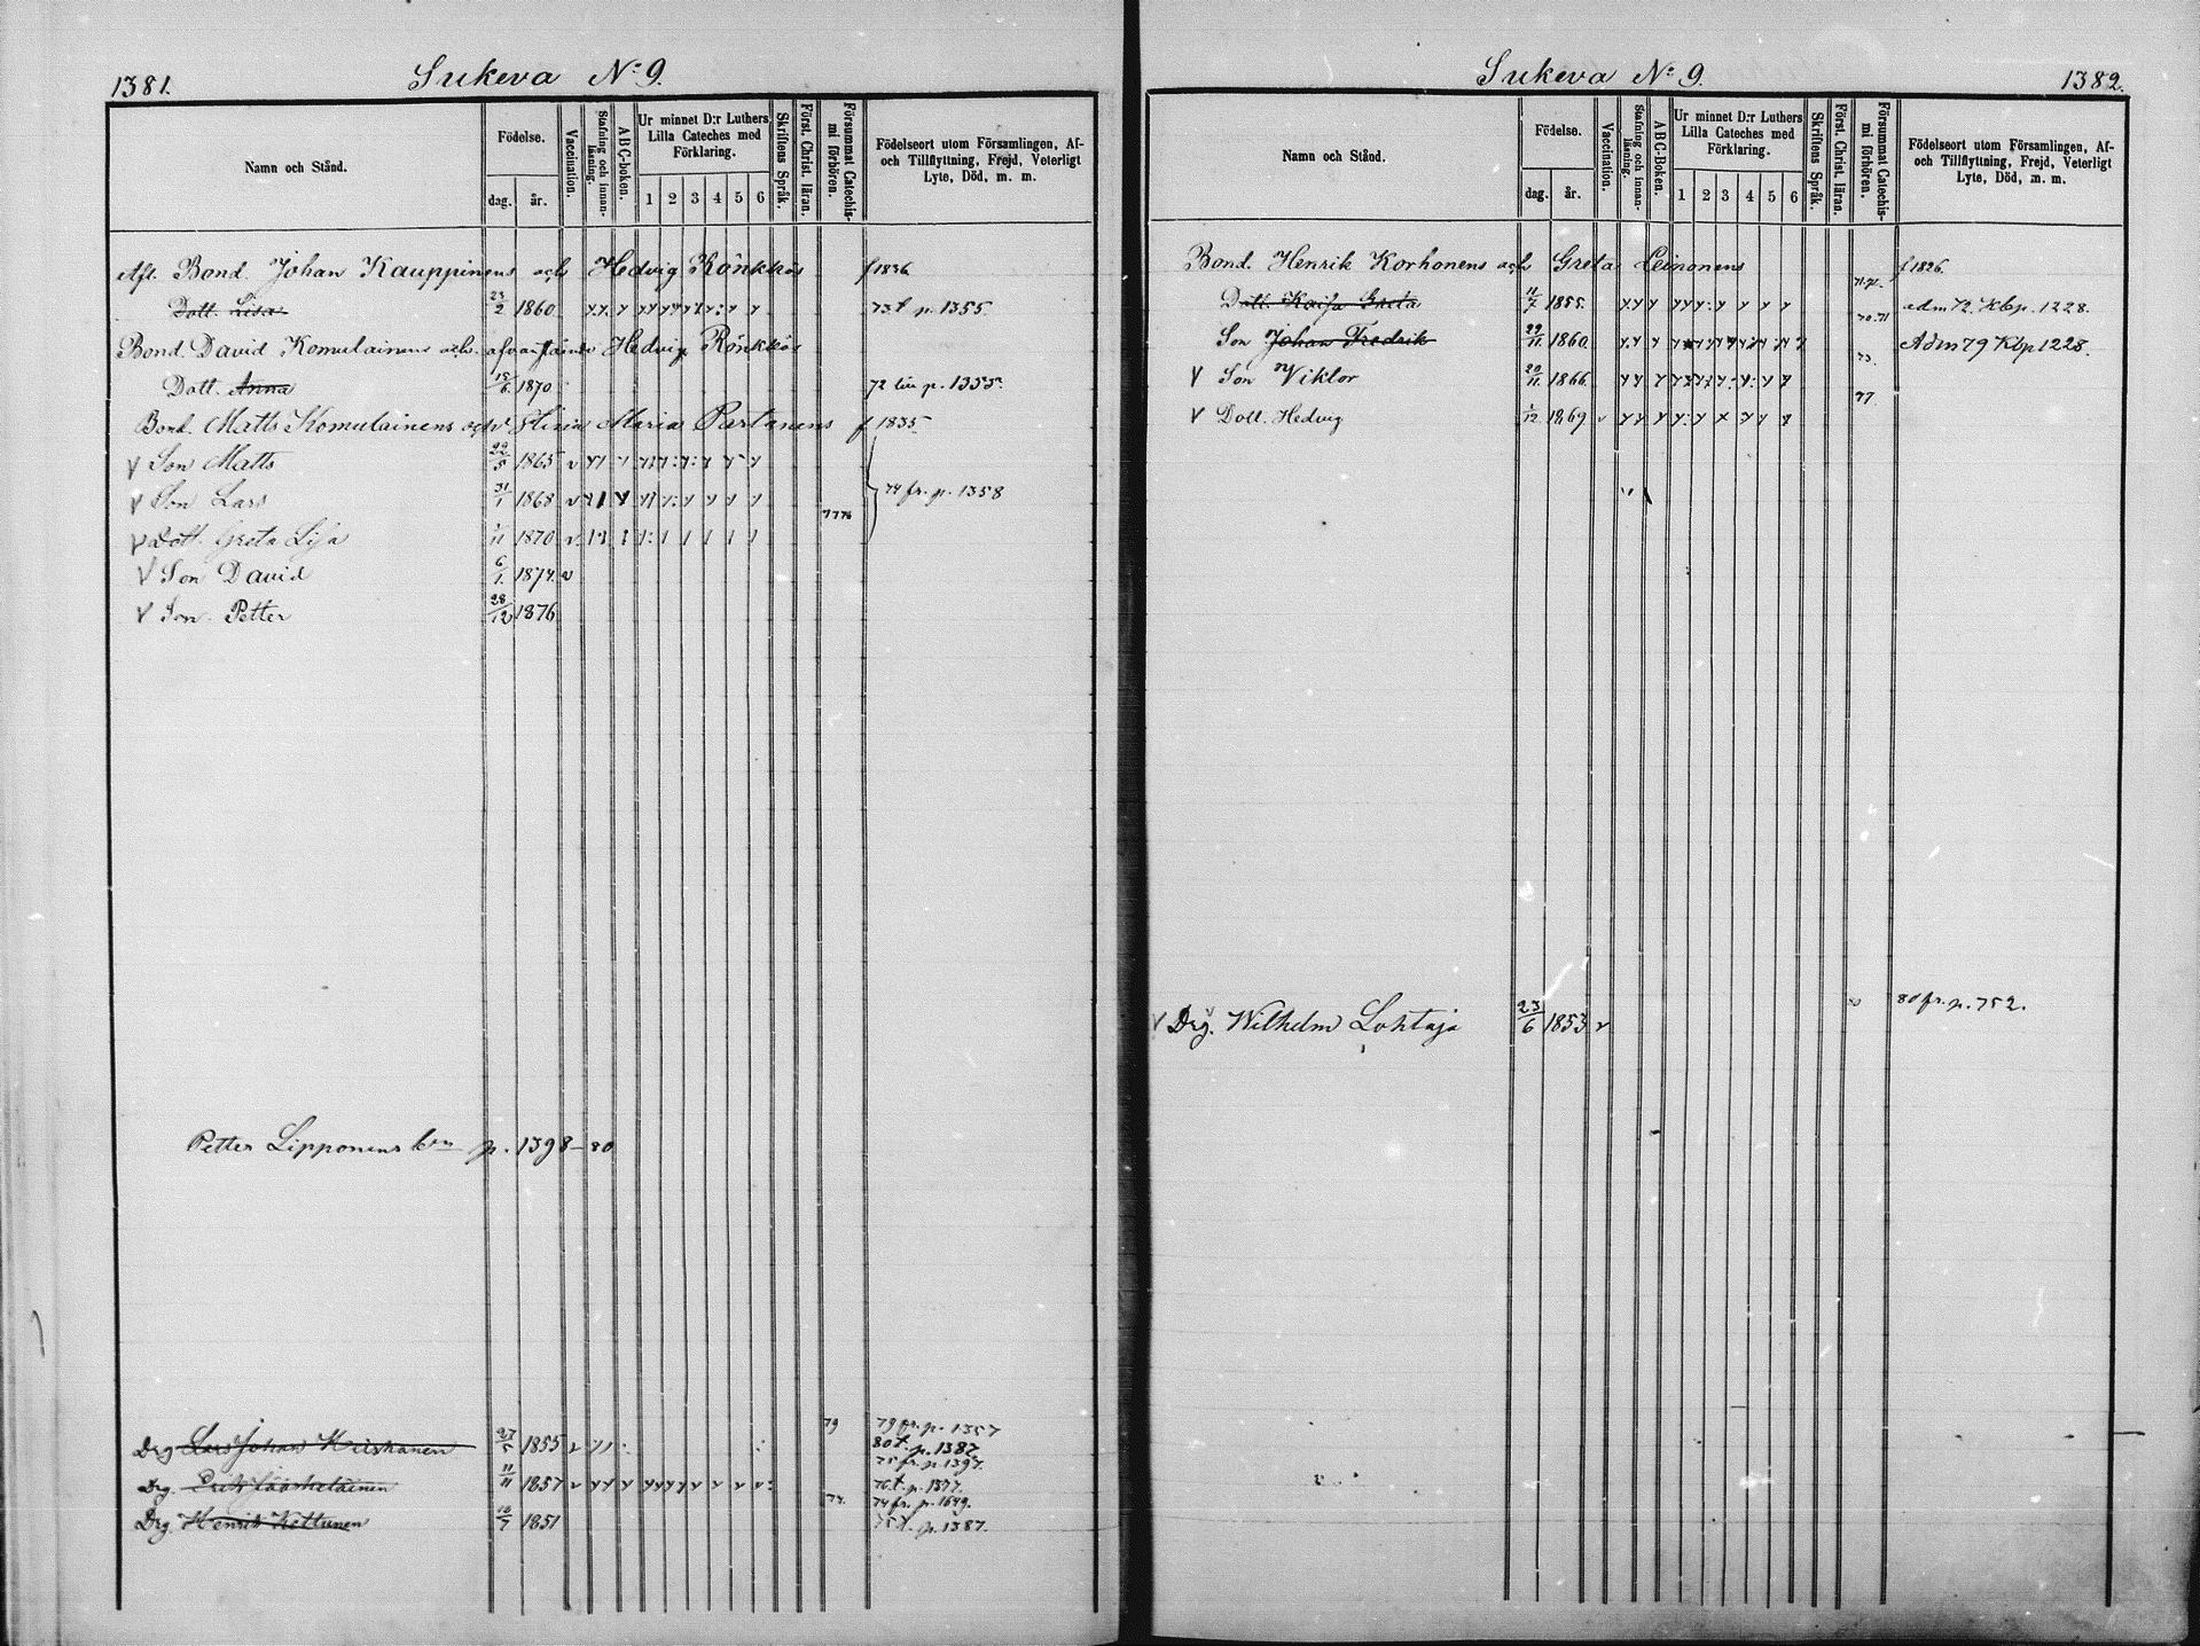 1381.
Sukeva No 9.
Namn och Stånd.
Födelse.
dag. år.
Vaccination.
Stafning och innanläsning.
ABC-boken.
Ur minnet D:r Luthers Lilla Cateches med Förklaring.
1 2 3 4 5 6
Skriftens Språk.
Först. Christ. läran.
Försummat Catechismi förhören.
Födelseort utom Församlingen, Af- och Tillflyttning, Frejd, Veterligt Lyte, Död, m. m.
Afl. Bond. Johan Kauppinens och Hedvig Rönkkös f 1836
Dott. Lisa 23/2 1860 73 t p. 1355.
Bond. David Komulainens och Hedvig Rönkkös
Dott. Anna 15/6 1870 72 p. 1355.
Bond. Matts Komulainens Maria Partanens f 1835
V Son Matts 22/5 1865
V Son Lars 31/1 1868 74 fr. p. 1358
V Dott. Greta Lisa 1870
V Son David 6/1 1874
V Son Petter 28/12 1876
Petter Lipponens p. 1398-80
Drg Lars Johan 27/5 1855 79 79 fr. p. 1357
80 t. p. 1387
75 fr. p. 1397.
Drg. Erik Jääskeläinen 11/11 1857 76 t. p. 1377.
74 fr. p. 1649.
Drg. Henrik Kettunen 10/7 1851 75 t. p. 1387.
Sukeva No 9.
1382.
Namn och Stånd.
Födelse.
dag. år.
Vaccination.
Stafning och innanläsning.
ABC-Boken.
Ur minnet D:r Luthers Lilla Cateches med Förklaring.
1 2 3 4 5 6
Skriftens Språk.
Först. Christ. läran.
Försummat Catechismi förhören.
Födelseort utom Församlingen, Af- och Tillflyttning, Frejd, Veterligt Lyte, Död, m. m.
Bond. Henrik Korhonens och Greta Leinonens f 1826.
Dott. Kaisa Greta 11/7 1855. adm 72 Kbp. 1228.
Son Johan Fredrik 29/11 1860 Adm 79 Kbp 1228.
V Son Viktor 20/11 1866
V Dott. Hedvig 1/12 1869
V Drg. Wilhelm Lohtaja 23/6 1853 80 fr. p. 752.